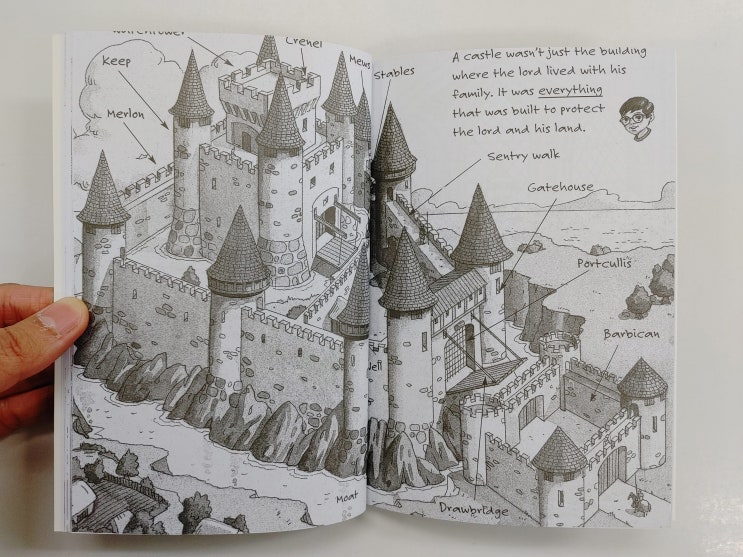 Crenel
Keep
Mews
Merlon
Stables
A castle wasn't just the building
where the lord lived with his
family. It was everything
that was built to protect
the lord and his land.
Sentry walk
Gatehouse
Portcullis
Barbican
Moat
Drawbridge